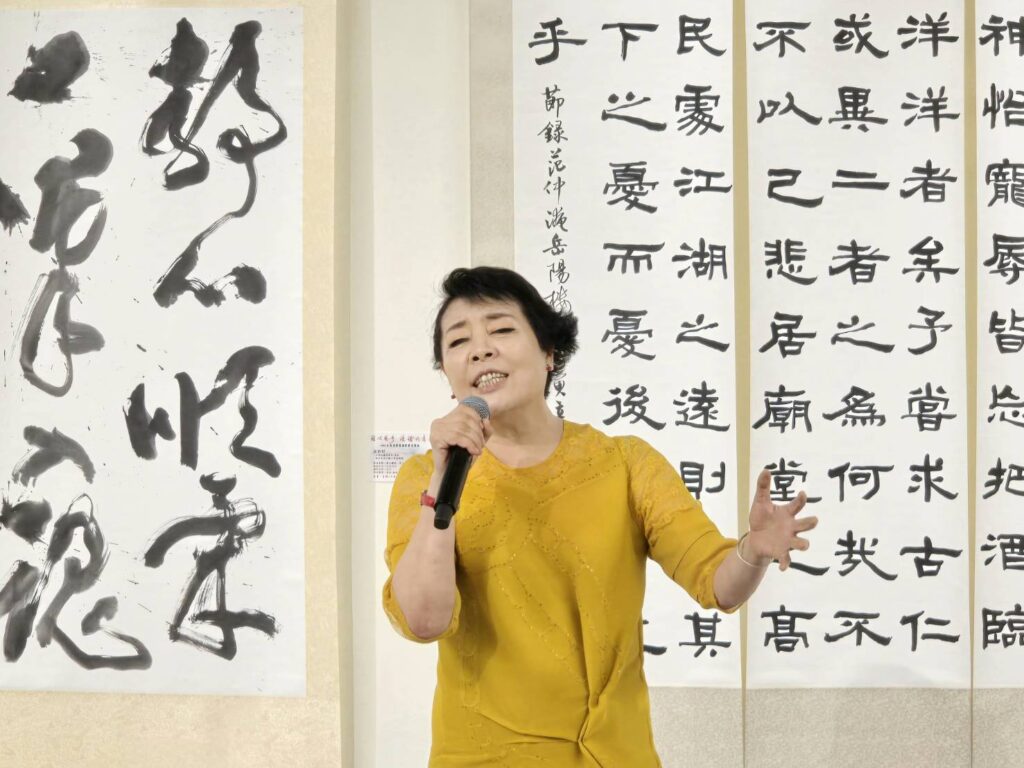 神怡寵辱皆忘把酒臨
洋洋者矣予嘗求古仁
或異二者之為何哉不
不以己悲居廟堂之高
民處江湖之遠則其
下之憂而憂後
乎
節錄范仲淹岳陽樓
心順
一筆入魂